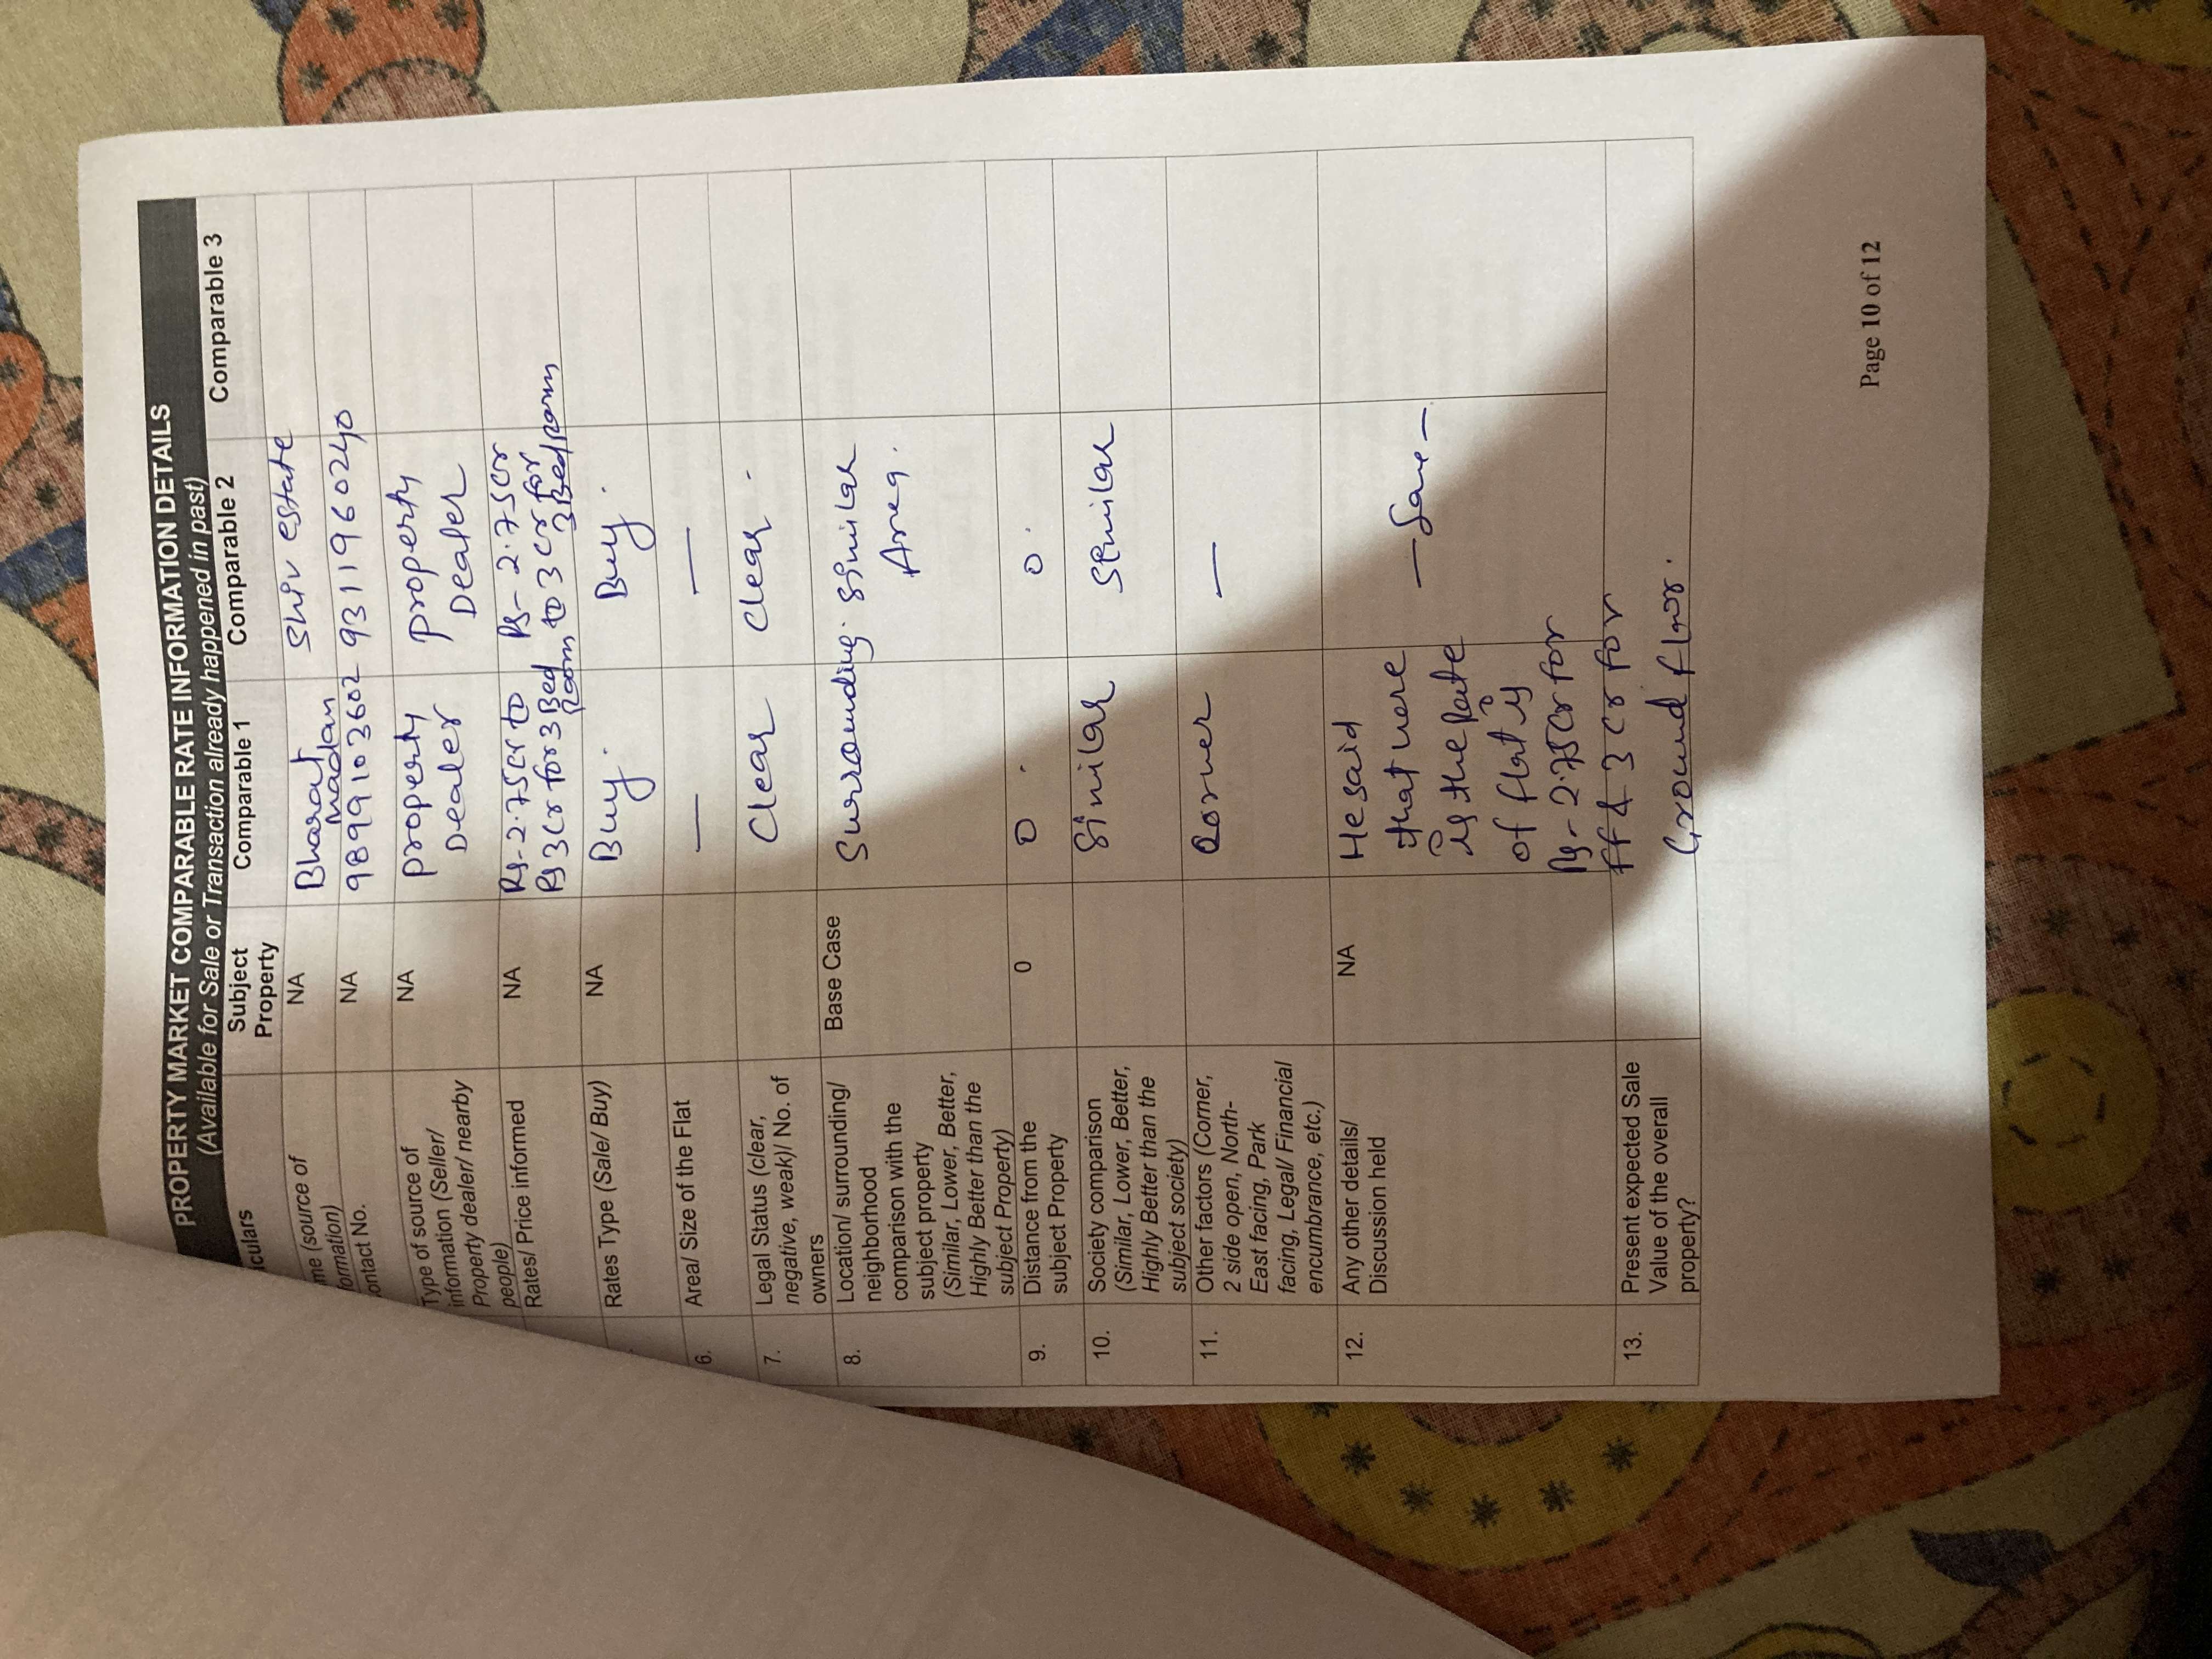 PROPERTY MARKET COMPARABLE RATE INFORMATION DETAILS
(Available for Sale or Transaction already happened in past)
culars Subject Property Comparable 1 Comparable 2 Comparable 3
me (source of formation) NA Bharat Madan Shiv estate
ontact No. NA 9899103602 9311960240
Type of source of information (Seller/ Property dealer/ nearby people) NA property Dealer property Dealer
Rates/ Price informed NA Rs-2.75Cr to Rs 3Cr for 3 Bed Room Rs-2.75cr to 3 cr for 3 Bed room
Rates Type (Sale/ Buy) NA Buy. Buy.
6. Area/ Size of the Flat — —
7. Legal Status (clear, negative, weak)/ No. of owners Clear Clear.
8. Location/ surrounding/ neighborhood comparison with the subject property (Similar, Lower, Better, Highly Better than the subject Property) Base Case Surrounding. Similar Area.
9. Distance from the subject Property 0 0. 0.
10. Society comparison (Similar, Lower, Better, Highly Better than the subject society) Similar Similar
11. Other factors (Corner, 2 side open, North-East facing, Park facing, Legal/ Financial encumbrance, etc.) Corner —
12. Any other details/ Discussion held NA He said that here is the Rate of flat is Rs-2.75Cr for ff & 3 Cr for Ground floor. —Same—
13. Present expected Sale Value of the overall property?
Page 10 of 12